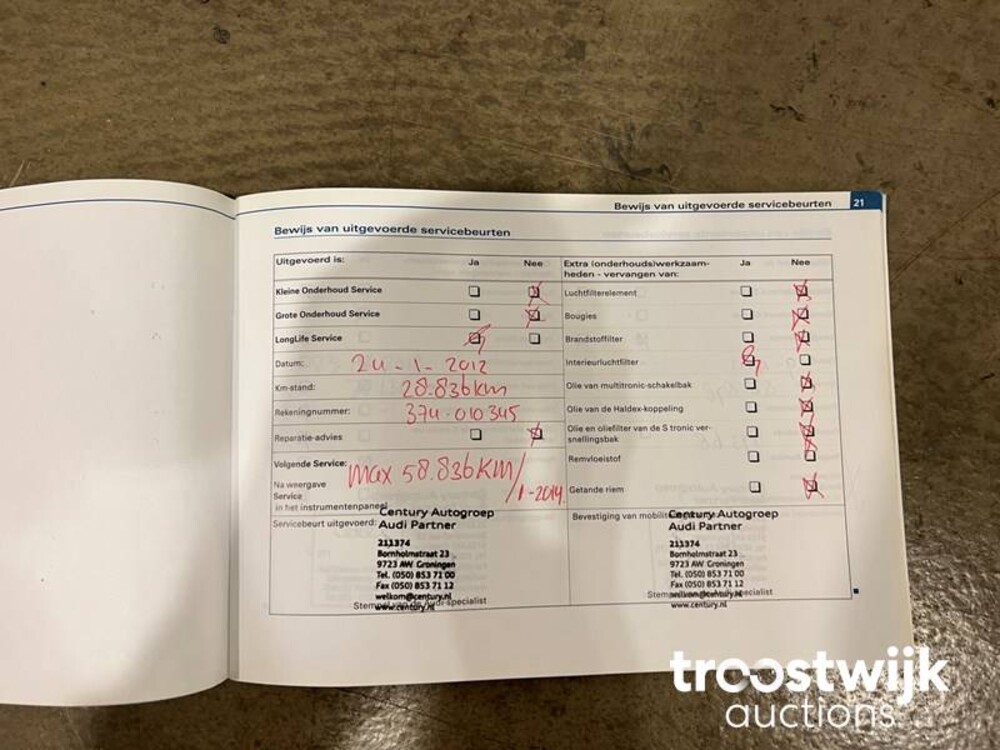 Bewijs van uitgevoerde servicebeurten 21
Bewijs van uitgevoerde servicebeurten
Uitgevoerd is: Ja Nee
Kleine Onderhoud Service
Grote Onderhoud Service
LongLife Service
Datum: 24-1-2012
Km-stand: 28.836km
Rekeningnummer: 374.010345
Reparatie-advies
Volgende Service: max 58.836KM/1-2014
Na weergave
Service
in het instrumentenpaneel
Servicebeurt uitgevoerd:
Century Autogroep
Audi Partner
211374
Bornholmstraat 23
9723 AW Groningen
Tel. (050) 853 71 00
Fax (050) 853 71 12
welkom@century.nl
Stempel van de Audi-specialist
www.century.nl
Extra (onderhouds)werkzaam- Ja Nee
heden - vervangen van:
Luchtfilterelement
Bougies
Brandstoffilter
Interieurluchtfilter
Olie van multitronic-schakelbak
Olie van de Haldex-koppeling
Olie en oliefilter van de S tronic ver-
snellingsbak
Remvloeistof
Getande riem
Bevestiging van
Century Autogroep
Audi Partner
211374
Bornholmstraat 23
9723 AW Groningen
Tel. (050) 853 71 00
Fax (050) 853 71 12
welkom@century.nl
www.century.nl
troostwijk
auctions